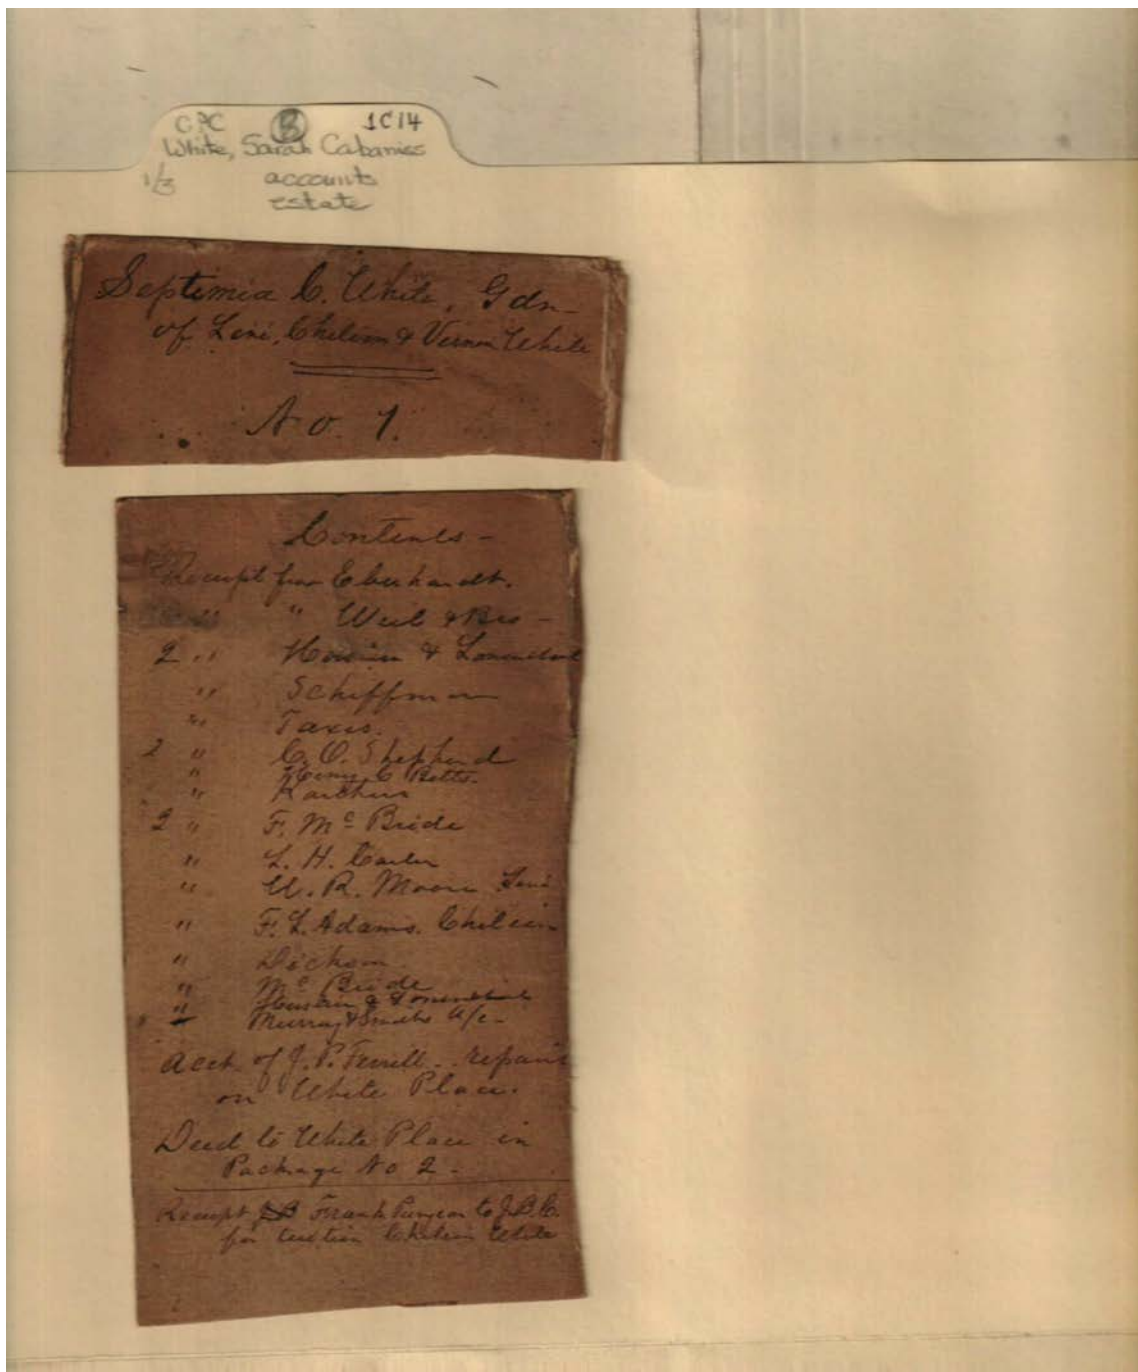 CPC (B) 1C14
White, Sarah Cabaniss
1/3 accounts
estate
Septimia C. White, Gdn
of Chilion & Vernon White
No. 1.
Contents -
Receipt from Eberhardt.
" " Weil & Bro -
2 " &
" Schiffman
" Taxes.
2 " C. O. Shepherd
" Henry C Betts.
"
2 " F. Mc Bride
" L. H.
" W. R. Moore
" F. L. Adams. Chilion
" Dickson
" Mc Bride
" &
" Murray & Smiths a/c -
Acct. of J. P. Ferrill - repairs
on White Place.
Deed to White Place in
Package No 2 -
Receipt Frank Puryear to J.B.C.
for tuition Chilion White